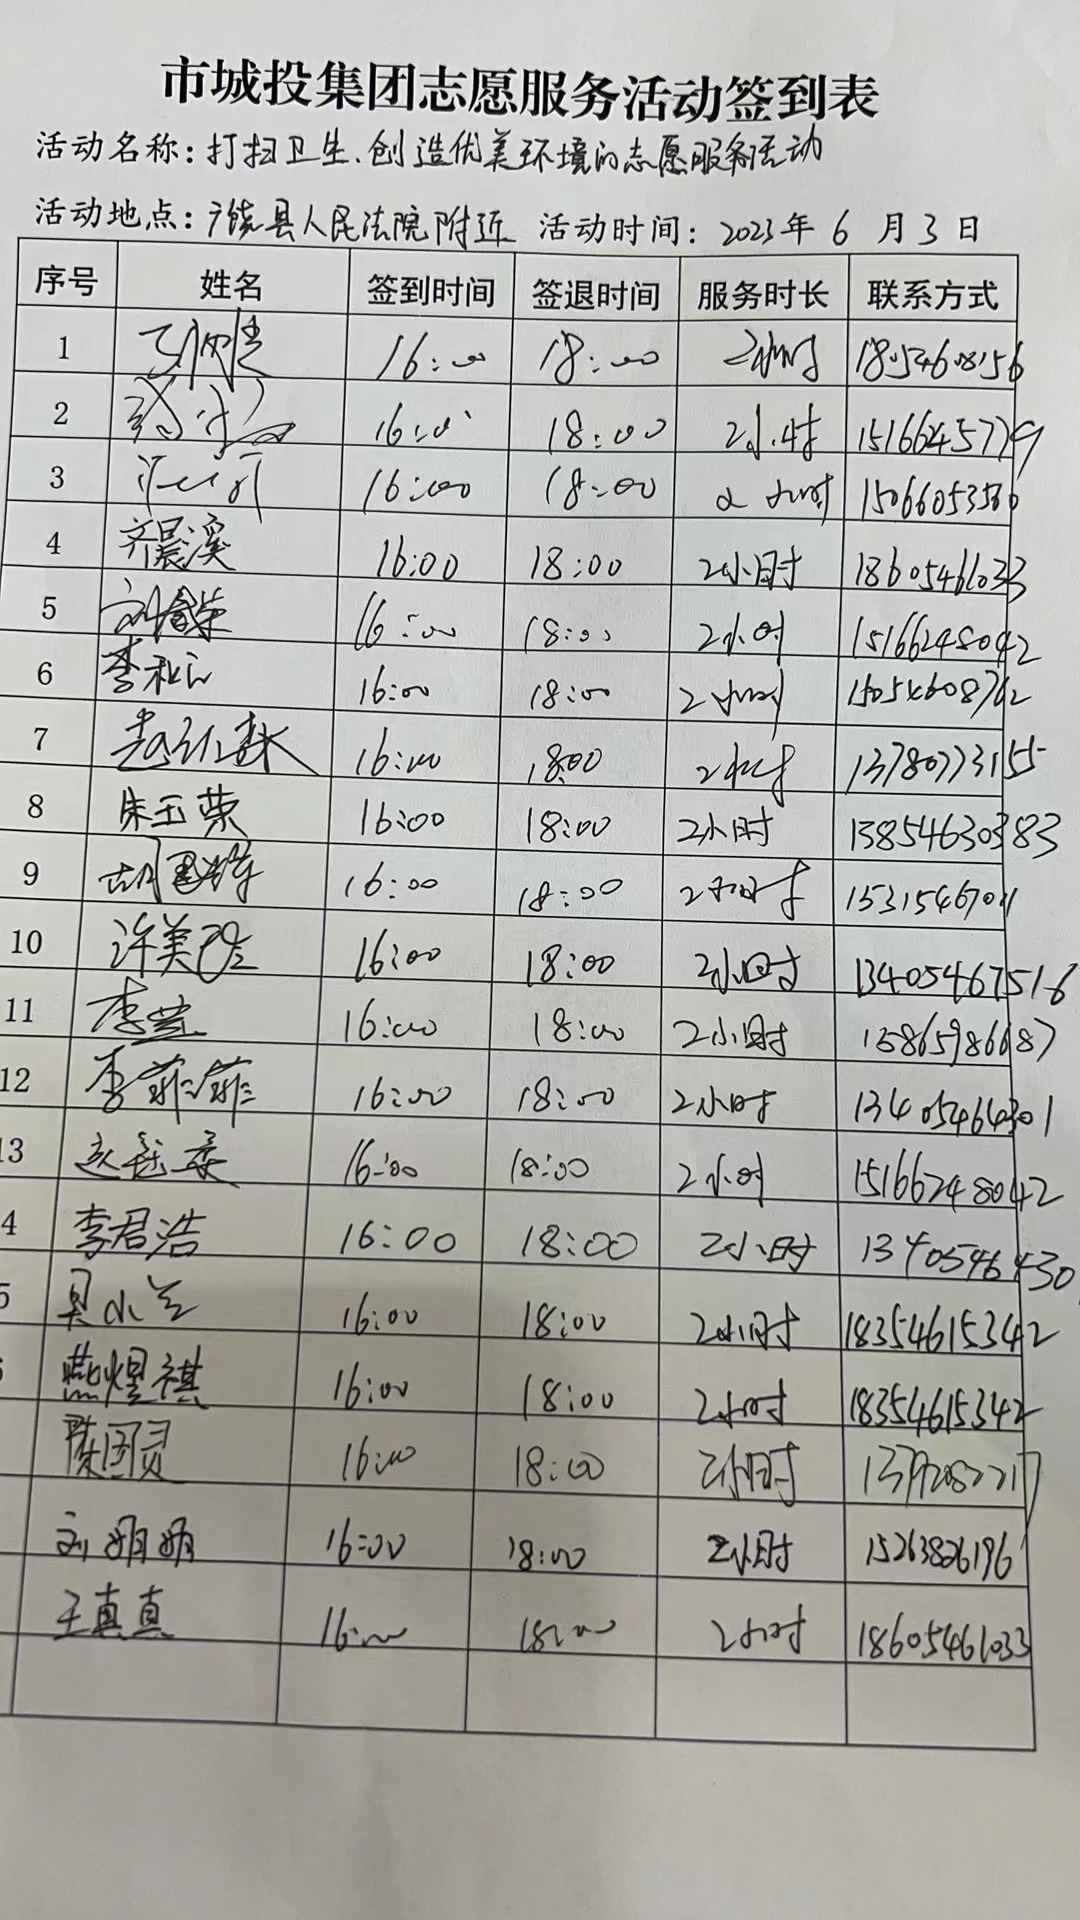 市城投集团志愿服务活动签到表
活动名称：打扫卫生、创造优美环境的志愿服务活动
活动地点：广饶县人民法院附近 活动时间：2023年6月3日
序号 姓名 签到时间 签退时间 服务时长 联系方式
1 16:00 18:00 2小时 18054608156
2 16:00 18:00 2小时 15166245779
3 16:00 18:00 2小时 15066053580
4 齐晨溪 16:00 18:00 2小时 18605461033
5 16:00 18:00 2小时 15166248042
6 16:00 18:00 2小时 15054608762
7 16:00 18:00 2小时 13780773155
8 朱玉荣 16:00 18:00 2小时 13854630383
9 16:00 18:00 2小时 15315467011
10 16:00 18:00 2小时 13405467516
11 16:00 18:00 2小时 15865986687
12 李菲菲 16:00 18:00 2小时 13405464301
3 16:00 18:00 2小时 15166248042
4 李君浩 16:00 18:00 2小时 1340546430
5 吴小兰 16:00 18:00 2小时 18354615342
燕煜祺 16:00 18:00 2小时 18354615342
陈国灵 16:00 18:00 2小时 13792082217
刘娟娟 16:00 18:00 2小时 15263826196
王真真 16:00 18:00 2小时 18605461033